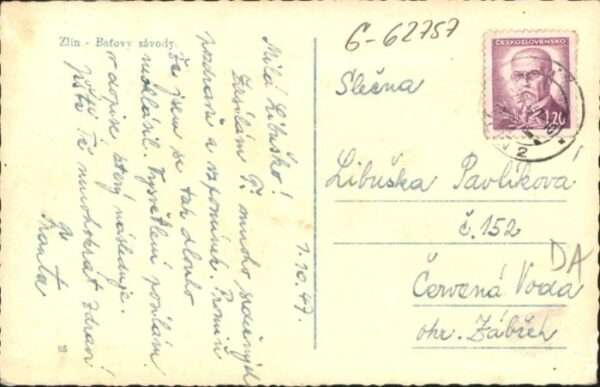 Zlín - Baťovy závody.
Milá Libuško!
Zasílám Ti mnoho srdečných
pozdravů a vzpomínek. Promiň
že jsem se tak dlouho
neohlásil. Vysvětlení posílám
v dopise který následuje.
Příště Tě mnohokrát zdraví
Franta
1.10.47.
6-62757
ČESKOSLOVENSKO
1.20
Slečna
Libuška Pavlíková
č. 152
DA
Červená Voda
okr. Zábřeh